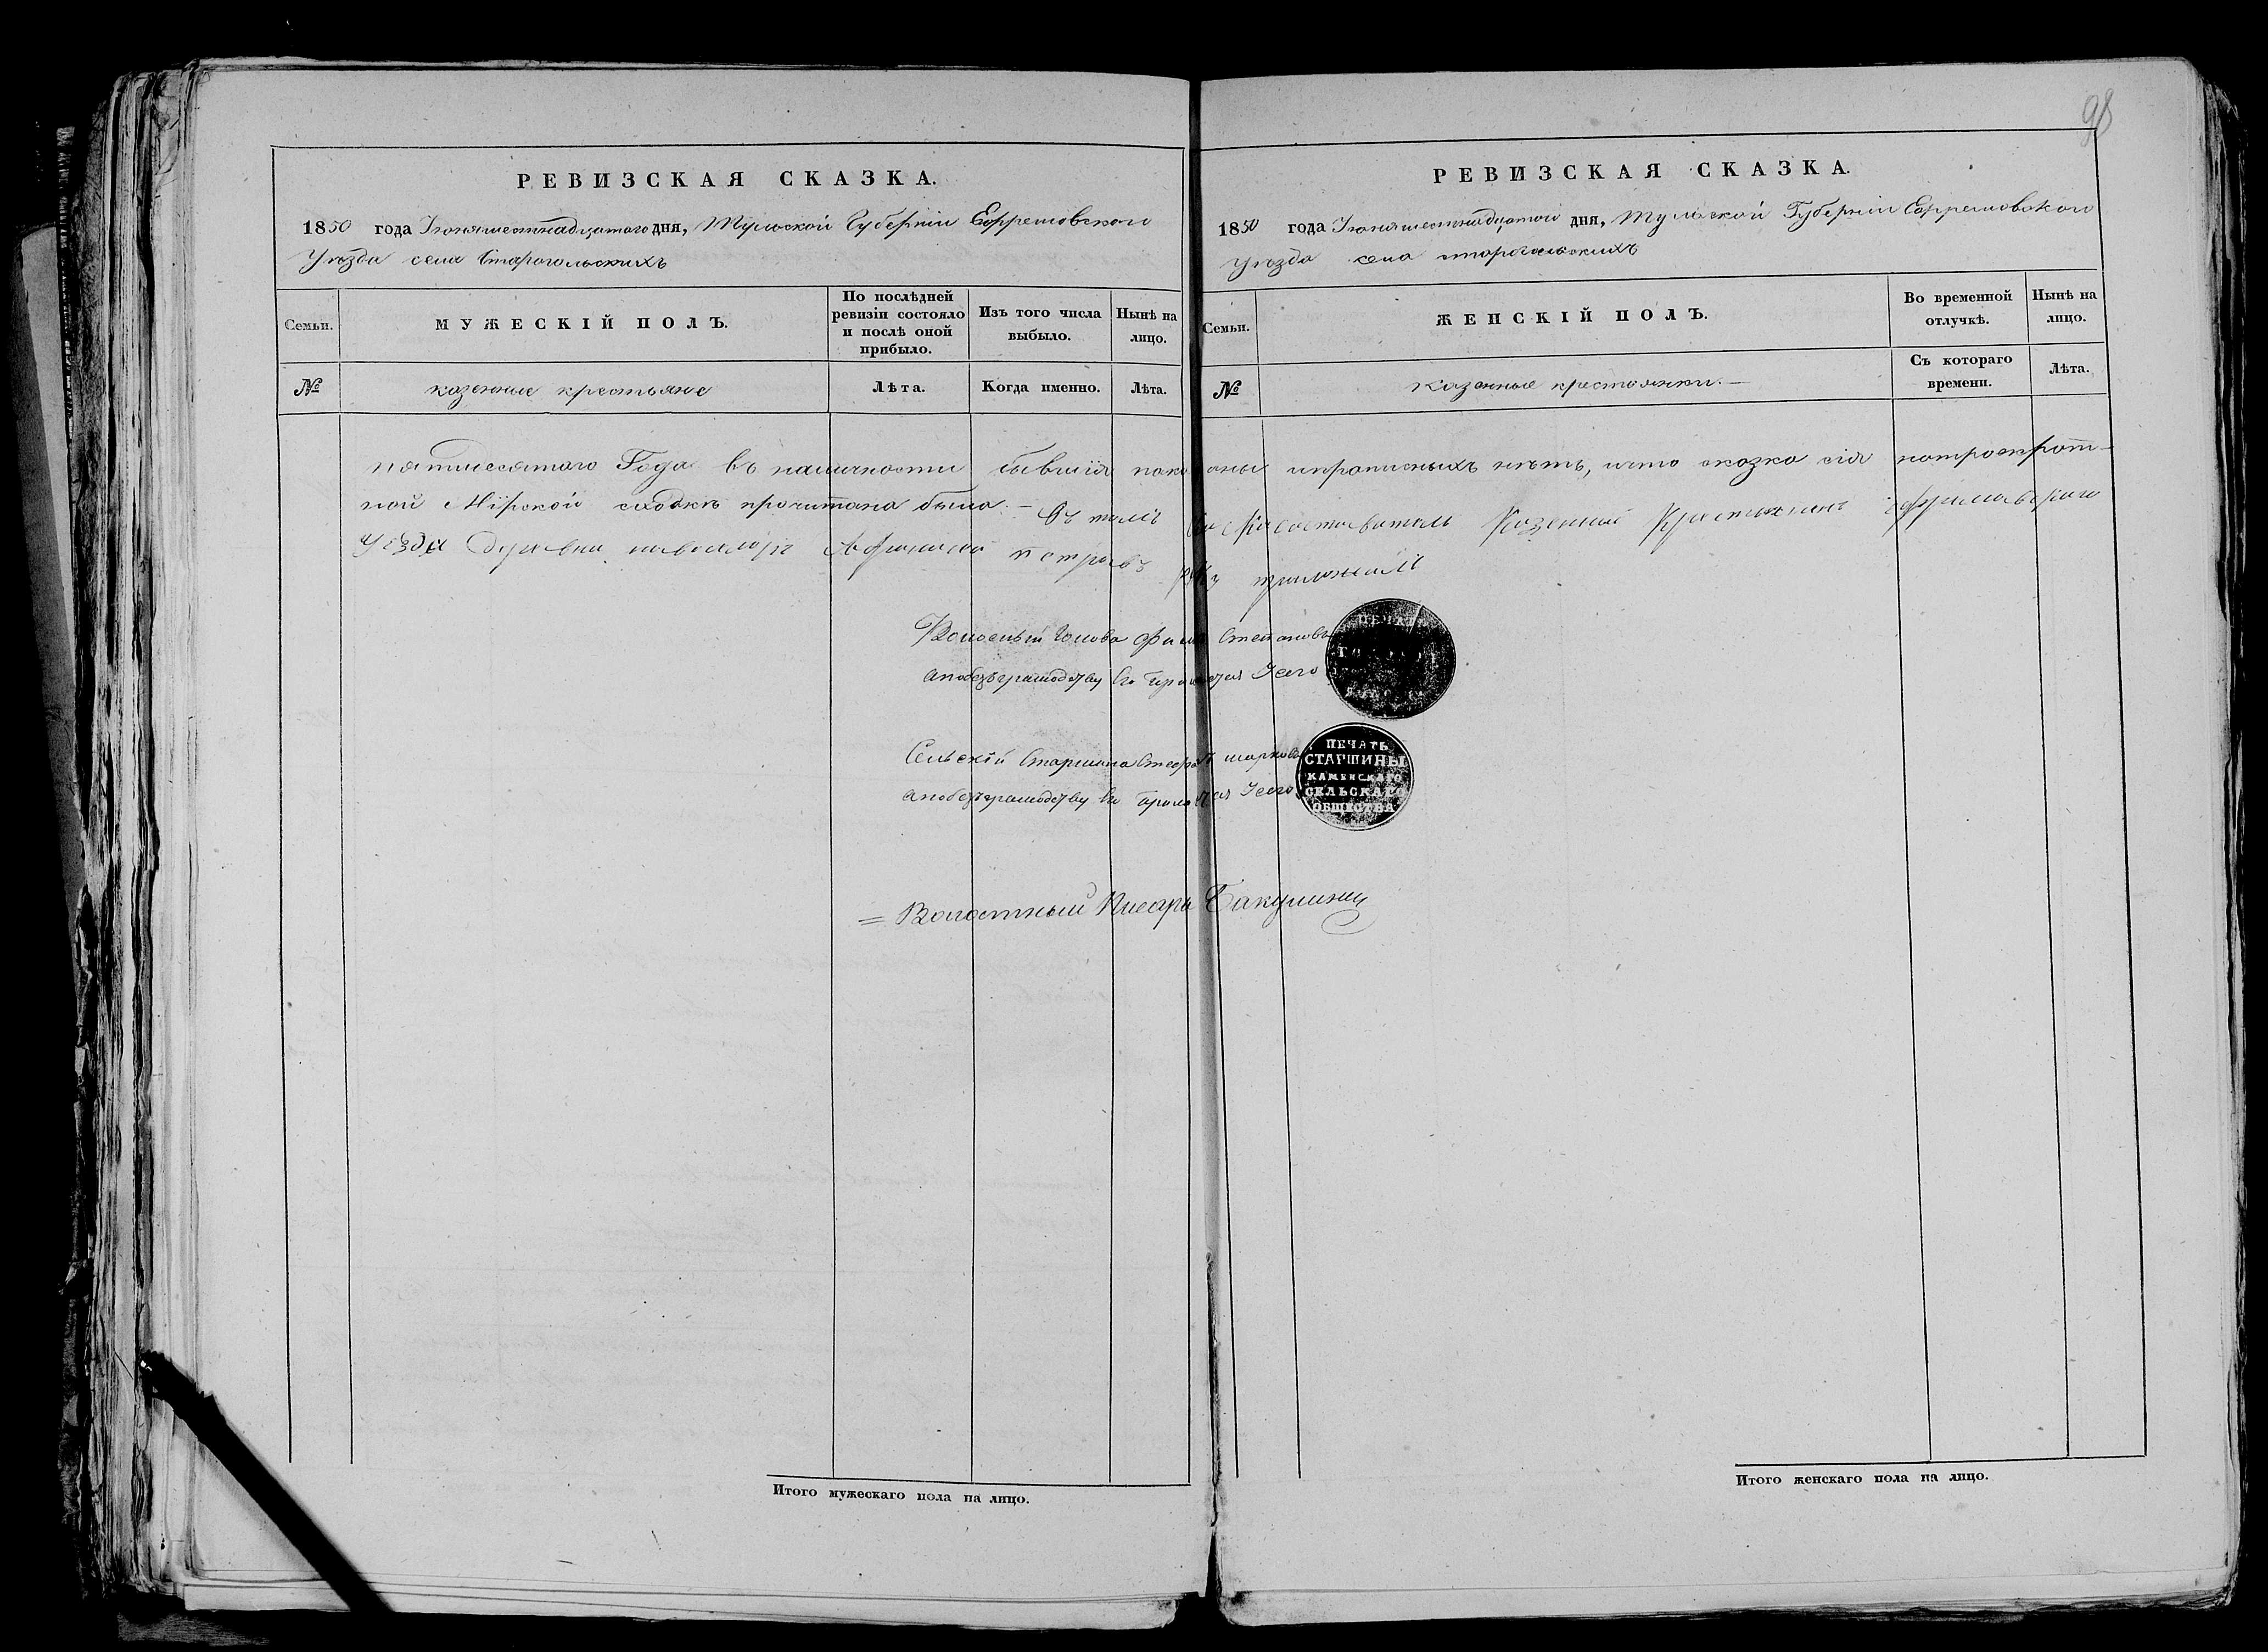 98
РЕВИЗСКАЯ СКАЗКА.
1850 года Іюня шестнадцатого дня, Тульской Губерніи Ефремовского
Уѣзда села Старогольскихъ
Семьи.
МУЖЕСКІЙ ПОЛЪ.
По послѣдней ревизіи состояло и послѣ оной прибыло.
Изъ того числа выбыло.
Нынѣ на лицо.
№
казенные крестьяне
Лѣта.
Когда именно.
Лѣта.
РЕВИЗСКАЯ СКАЗКА.
1850 года Іюня шестнадцатого дня, Тульской Губерніи Ефремовского
Уѣзда села старогольскихъ
Семьи.
ЖЕНСКІЙ ПОЛЪ.
Во временной отлучкѣ.
Нынѣ на лицо.
№
Казенные крестьянки.—
Съ котораго времени.
Лѣта.
пятидесятого Года въ наличности бывшія показаны и прописныхъ нѣтъ, и что сказка сія потроекрот-
ной Мірской сходкѣ прочитана была.— Въ томъ казенный крестьянинъ
Уезда Деревни Петровъ руку приложилъ
Волосный Голова Степановъ
а по безграмотству его приложилъ
Сельскій Старшина марковъ
а по безграмотству его приложилъ
= Волостный Писарь Бакулинъ
ПЕЧАТЬ
ПЕЧАТЬ
СТАРШИНЫ
КАМЕНСКАГО
СЕЛЬСКАГО
ОБЩЕСТВА
Итого мужескаго пола на лицо.
Итого женскаго пола на лицо.